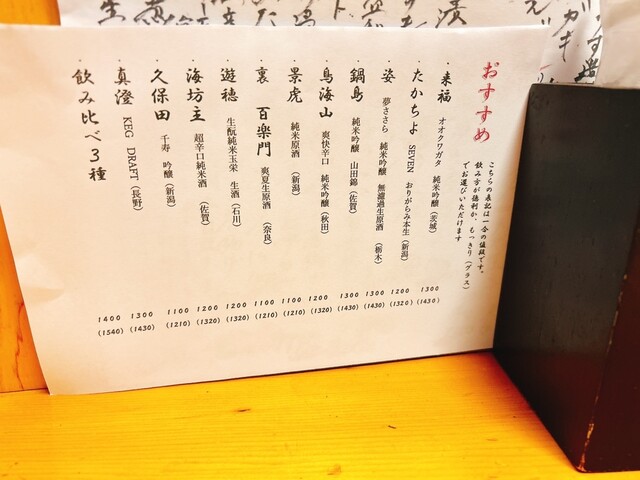 おすすめ
こちらの表記は一合の値段です。
飲み方が徳利か、もっきり(グラス)
でお選びいただけます
・来福 オオクワガタ 純米吟醸(茨城) 1300 (1430)
・たかちよ SEVEN おりがらみ本生(新潟) 1200 (1320)
・姿 夢ささら 純米吟醸 無濾過生原酒(栃木) 1300 (1430)
・鍋島 純米吟醸 山田錦(佐賀) 1300 (1430)
・鳥海山 爽快辛口 純米吟醸(秋田) 1200 (1320)
・景虎 純米原酒(新潟) 1100 (1210)
・裏 百楽門 爽夏生原酒(奈良) 1100 (1210)
・遊穂 生酛純米玉栄 生酒(石川) 1200 (1320)
・海坊主 超辛口純米酒(佐賀) 1200 (1320)
・久保田 千寿 吟醸(新潟) 1100 (1210)
・真澄 KEG DRAFT(長野) 1300 (1430)
・飲み比べ3種 1400 (1540)